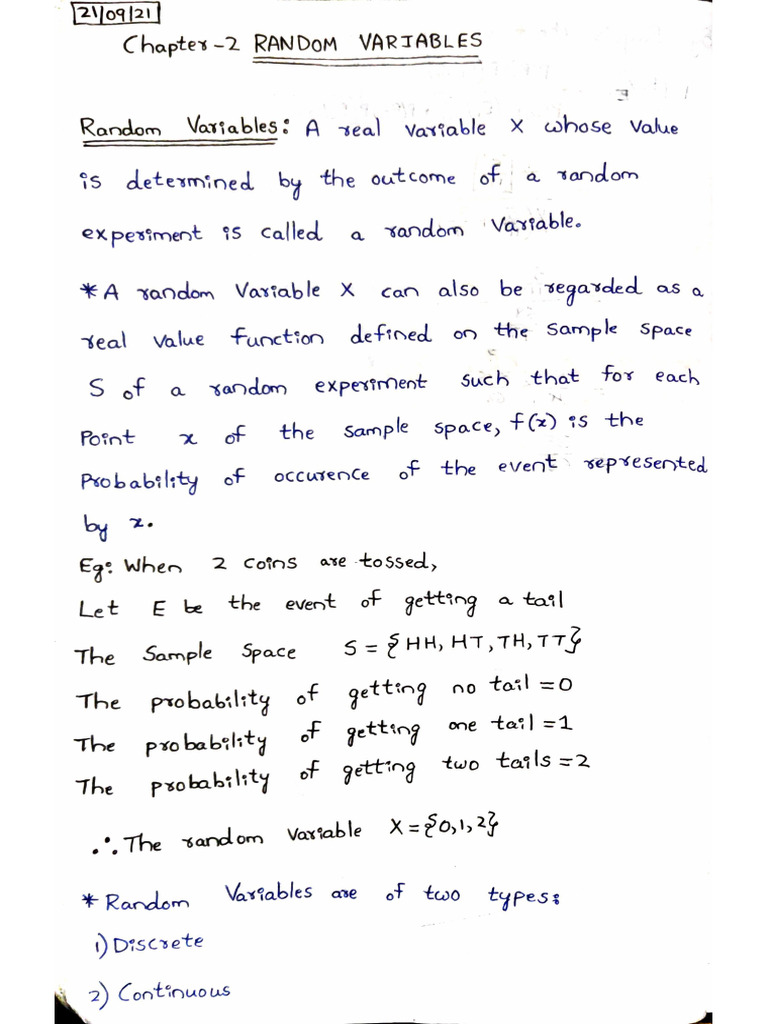 21/09/21
Chapter-2 RANDOM VARIABLES
Random Variables: A real variable X whose value
is determined by the outcome of a random
experiment is called a random variable.
*A random Variable X can also be regarded as a
real value function defined on the sample space
S of a random experiment such that for each
Point x of the sample space, f(x) is the
Probability of occurence of the event represented
by x.
Eg: When 2 coins are tossed,
Let E be the event of getting a tail
The Sample Space S = {HH, HT, TH, TT}
The probability of getting no tail = 0
The probability of getting one tail = 1
The probability of getting two tails = 2
∴ The random variable X = {0, 1, 2}
* Random Variables are of two types:
1) Discrete
2) Continuous